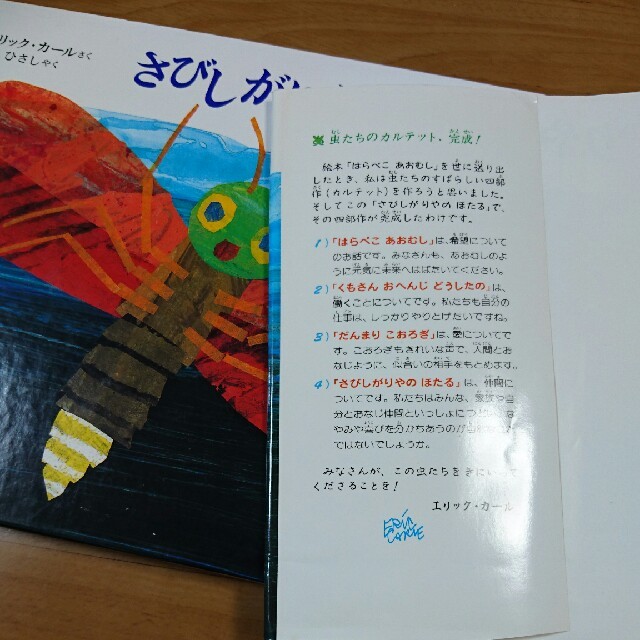 リック・カール さく
ひさし やく
さびしが
虫たちのカルテット、完成！
絵本「はらぺこ あおむし」を世に送り出
したとき、私は虫たちのすばらしい四部
作（カルテット）を作ろうと思いました。
そしてこの「さびしがりやの ほたる」で、
その四部作が完成したわけです。
1）「はらぺこ あおむし」は、希望について
のお話です。みなさんも、あおむしのよ
うに元気に未来へはばたいてください。
2）「くもさん おへんじ どうしたの」は、
働くことについてです。私たちも自分の
仕事は、しっかりやりとげたいですね。
3）「だんまり こおろぎ」は、愛についてで
す。こおろぎもきれいな声で、人間とお
なじように、似合いの相手をもとめます。
4）「さびしがりやの ほたる」は、仲間に
ついてです。私たちはみんな、家族や自
分とおなじ仲間といっしょに
やみや喜びをわかちあうのが
ではないでしょうか。
みなさんが、この虫たちを
くださることを！
エリック・カール
ERIC
CARLE